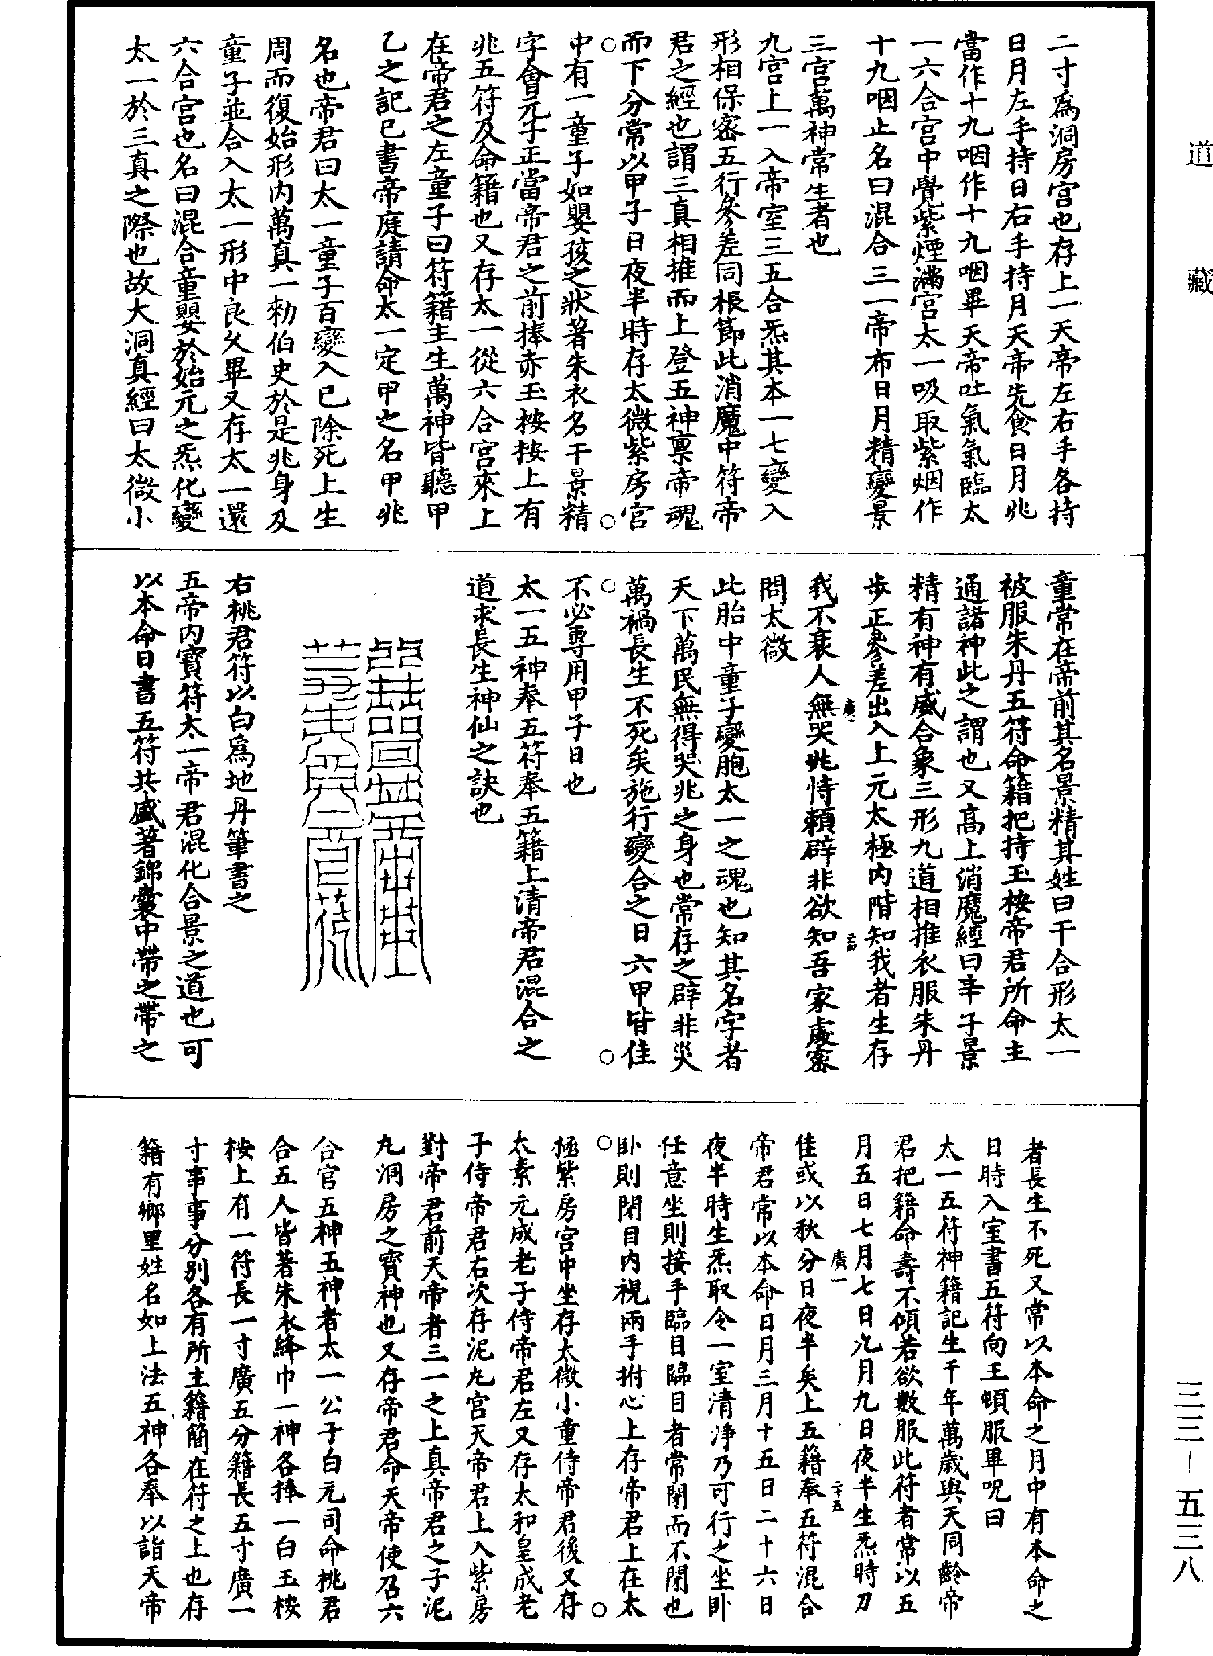 道藏
二寸爲洞房宮也存上一天帝左右手各持
日月左手持日右手持月天帝先食日月兆
當作十九咽作十九咽畢天帝吐氣氣臨太
一六合宮中覺紫煙滿宮太一吸取紫烟作
十九咽止名曰混合三一帝布日月精變景
三宮萬神常生者也
九宮上一入帝室三五合炁其本一七變入
形相保密五行參差同根節此消魔中符帝
君之經也謂三真相推而上登五神稟帝魂
而下分常以甲子日夜半時存太微紫房宮
中有一童子如嬰孩之狀著朱衣名干景精
字會元子正當帝君之前捧赤玉按按上有
兆五符及命籍也又存太一從六合宮來上
在帝君之左童子曰符籍主生萬神皆聽甲
乙之記已書帝庭請命太一定甲之名甲兆
名也帝君曰太一童子百變入已除死上生
周而復始形內萬真一勑伯史於是兆身及
童子並合入太一形中良久畢又存太一還
六合宮也名曰混合童嬰於始元之炁化變
太一於三真之際也故大洞真經曰太微小
童常在帝前其名景精其姓曰干合形太一
被服朱丹五符命籍把持玉按帝君所命主
通諸神此之謂也又高上消魔經曰幸子景
精有神有威合象三形九道相推衣服朱丹
步正參差出入上元太極內階知我者生存
我不衰人無哭兆恃賴辟非欲知吾家處密
問太微
此胎中童子變胞太一之魂也知其名字者
天下萬民無得哭兆之身也常存之辟非災
萬禍長生不死矣施行變合之日六甲皆佳
不必專用甲子日也
太一五神奉五符奉五籍上清帝君混合之
道求長生神仙之訣也
右桃君符以白爲地丹筆書之
五帝內寶符太一帝君混化合景之道也可
以本命日書五符共盛著錦囊中帶之帶之
者長生不死又常以本命之月中有本命之
日時入室書五符向王頓服畢呪曰
太一五符神籍記生千年萬歲與天同齡帝
君把籍命壽不傾若欲數服此符者常以五
月五日七月七日九月九日夜半生炁時刀
廣一
二寸五
佳或以秋分日夜半矣上五籍奉五符混合
帝君常以本命日月三月十五日二十六日
夜半時生炁取令一室清淨乃可行之坐卧
任意坐則接手臨目臨目者常閉而不閉也
卧則閉目內視兩手拊心上存帝君上在太
極紫房宮中坐存太微小童侍帝君後又存
太素元成老子侍帝君左又存太和皇成老
子侍帝君右次存泥丸宮天帝君上入紫房
對帝君前天帝者三一之上真帝君之子泥
丸洞房之寶神也又存帝君命天帝使召六
合官五神五神者太一公子白元司命桃君
合五人皆著朱衣絳巾一神各捧一白玉按
按上有一符長一寸廣五分籍長五寸廣一
寸事事分別各有所主籍簡在符之上也存
籍有鄉里姓名如上法五神各奉以詣天帝
三三－五三八